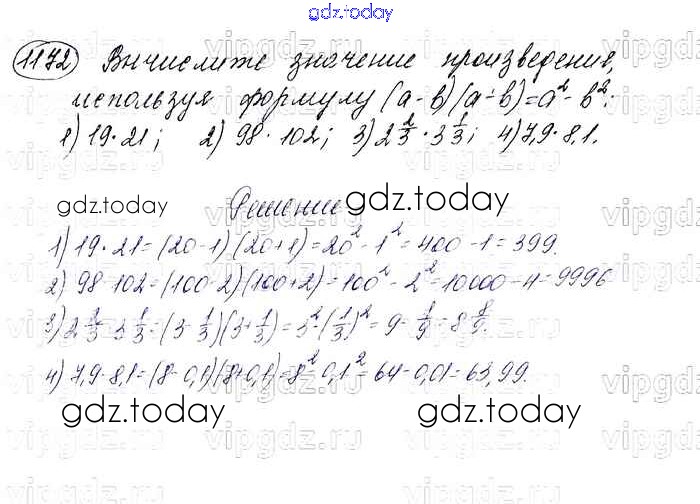 gdz.today
1172 Вычислите значение произведения,
используя формулу (a-b)(a+b)=a²-b²:
1) 19·21; 2) 98·102; 3) 2 2/3 · 3 1/3; 4) 7,9·8,1.
gdz.today Решение gdz.today
1) 19·21=(20-1)(20+1)=20²-1²=400-1=399.
2) 98·102=(100-2)(100+2)=100²-2²=10000-4=9996
3) 2 2/3·3 1/3=(3-1/3)(3+1/3)=3²-(1/3)²=9-1/9=8 8/9.
4) 7,9·8,1=(8-0,1)(8+0,1)=8²-0,1²=64-0,01=63,99.
gdz.today gdz.today
vipgdz.ru